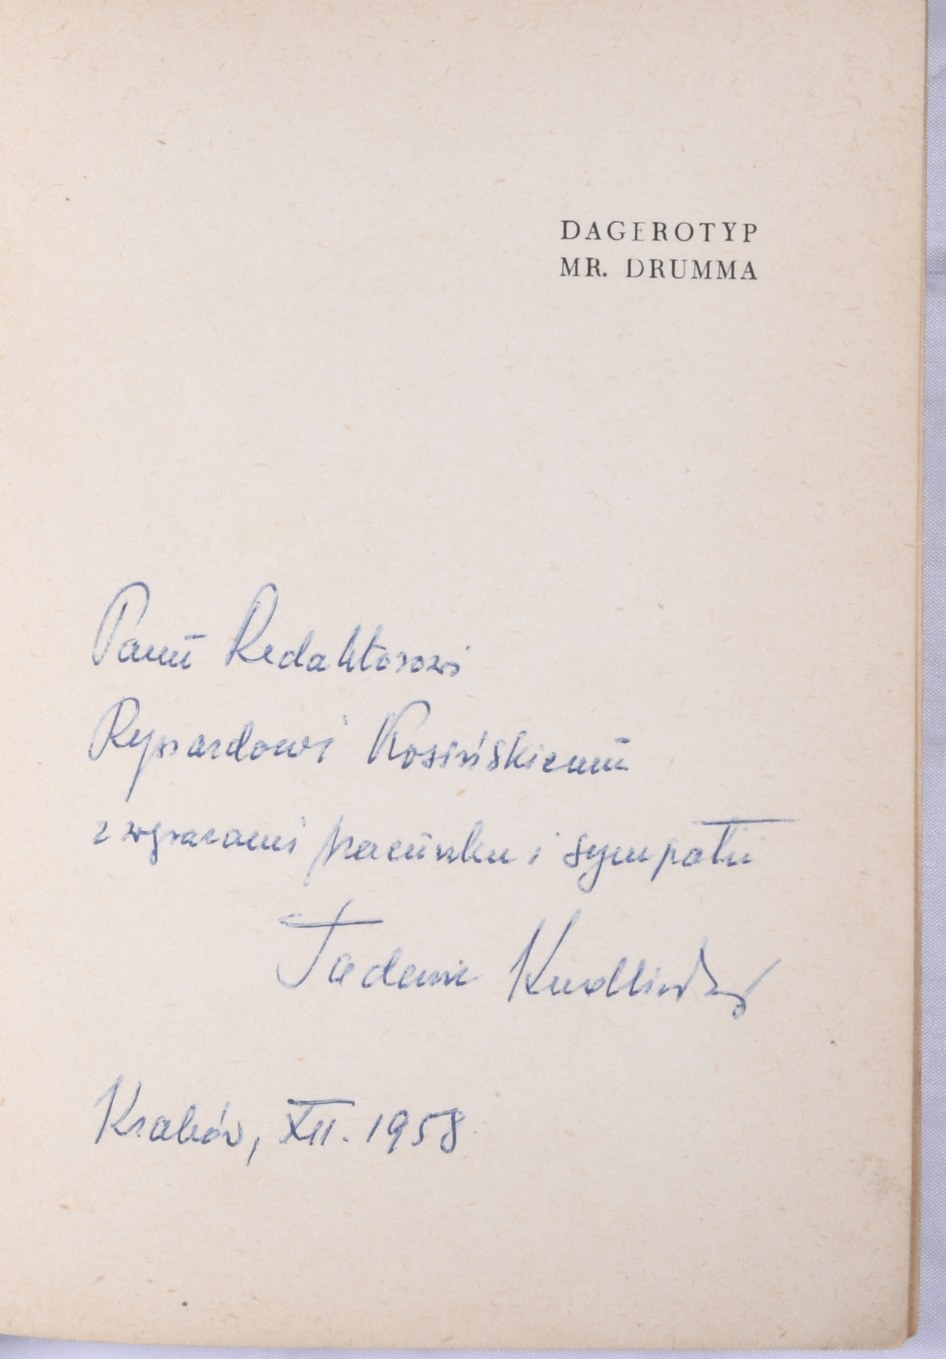 DAGEROTYP
MR. DRUMMA
Panu Redaktorowi
Ryszardowi Kosińskiemu
z wyrazami szacunku i sympatii
Tadeusz Kudliński
Kraków, XII. 1958